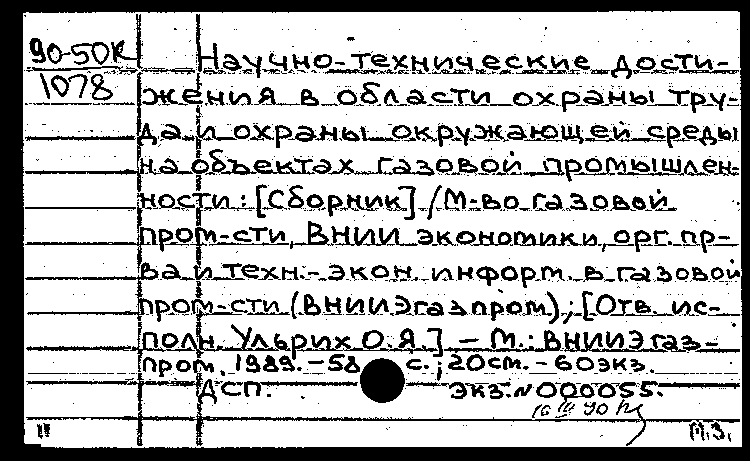 90-50К
1078
Научно-технические дости-
жения в области охраны тру-
да и охраны окружающей среды
на объектах газовой промышлен-
ности : [Сборник] / М-во газовой
пром-сти, ВНИИ экономики, орг. пр-
ва и техн.-экон. информ. в газовой
пром-сти (ВНИИЭгазпром) ; [Отв. ис-
полн. Ульрих О.Я.] – М. : ВНИИЭгаз-
пром, 1989. – 58 с. ; 20см. – 60экз.
ДСП. Экз. № 000055.
16 III 90
М.З.